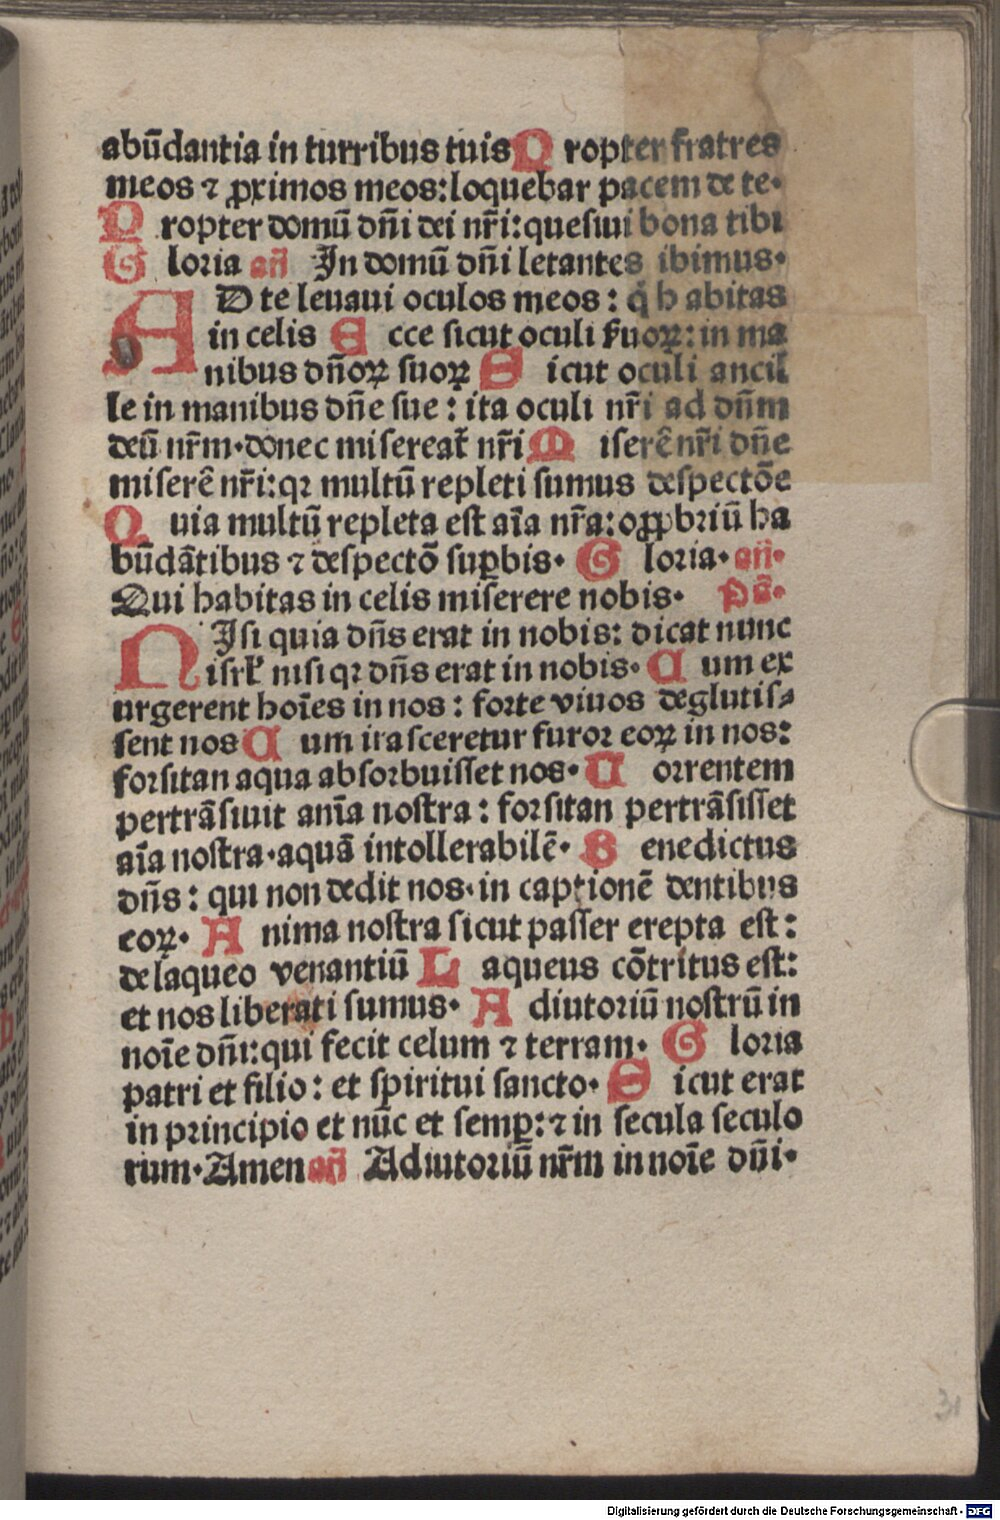 abūdantia in turribus tuis P ropter fratres
meos ⁊ ꝓximos meos: loquebar pacem de te·
P ropter domū dn̄i dei nr̄i: quesiui bona tibi
G loria an̄ In domū dn̄i letantes ibimus·
A D te leuaui oculos meos: q̇ habitas
in celis E cce sicut oculi ẜuoꝝ: in ma
nibus dn̄oꝝ suoꝝ S icut oculi ancil
le in manibus dn̄e sue: ita oculi nr̄i ad dn̄m
deū nr̄m· donec misereat̄ nr̄i M iserē nr̄i dn̄e
miserē nr̄i: qꝛ multū repleti sumus despectōe
Q uia multū repleta est aīa nr̄a: oꝓꝓbriū ha
būdātibus ⁊ despectō suꝑbis· G loria· an̄·
Qui habitas in celis miserere nobis· ps̄·
N Isi quia dn̄s erat in nobis: dicat nunc
isrł nisi qꝛ dn̄s erat in nobis· C um ex
urgerent hoīes in nos: forte viuos deglutis⸗
sent nos C um irasceretur furor eoꝝ in nos:
forsitan aqua absorbuisset nos· T orrentem
pertrāsiuit anīa nostra: forsitan pertrāsisset
aīa nostra· aquā intollerabilē· B enedictus
dn̄s: qui non dedit nos· in captionē dentibus
eoꝝ· A nima nostra sicut passer erepta est:
de laqueo venantiū L aqueus cōtritus est:
et nos liberati sumus· A diutoriū nostrū in
noīe dn̄i: qui fecit celum ⁊ terram· G loria
patri et filio: et spiritui sancto· S icut erat
in principio et nūc et semꝑ: ⁊ in secula seculo
rum· Amen an̄ Adiutoriū nr̄m in noīe dn̄i·
31
Digitalisierung gefördert durch die Deutsche Forschungsgemeinschaft - DFG